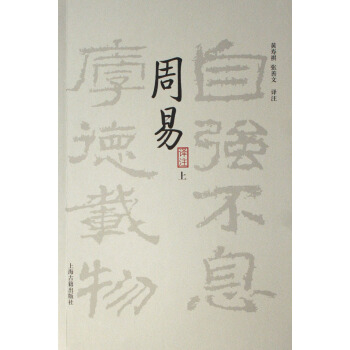 黄寿祺 张善文 译注
自强不息
厚德载物
周易
译注
上
上海古籍出版社